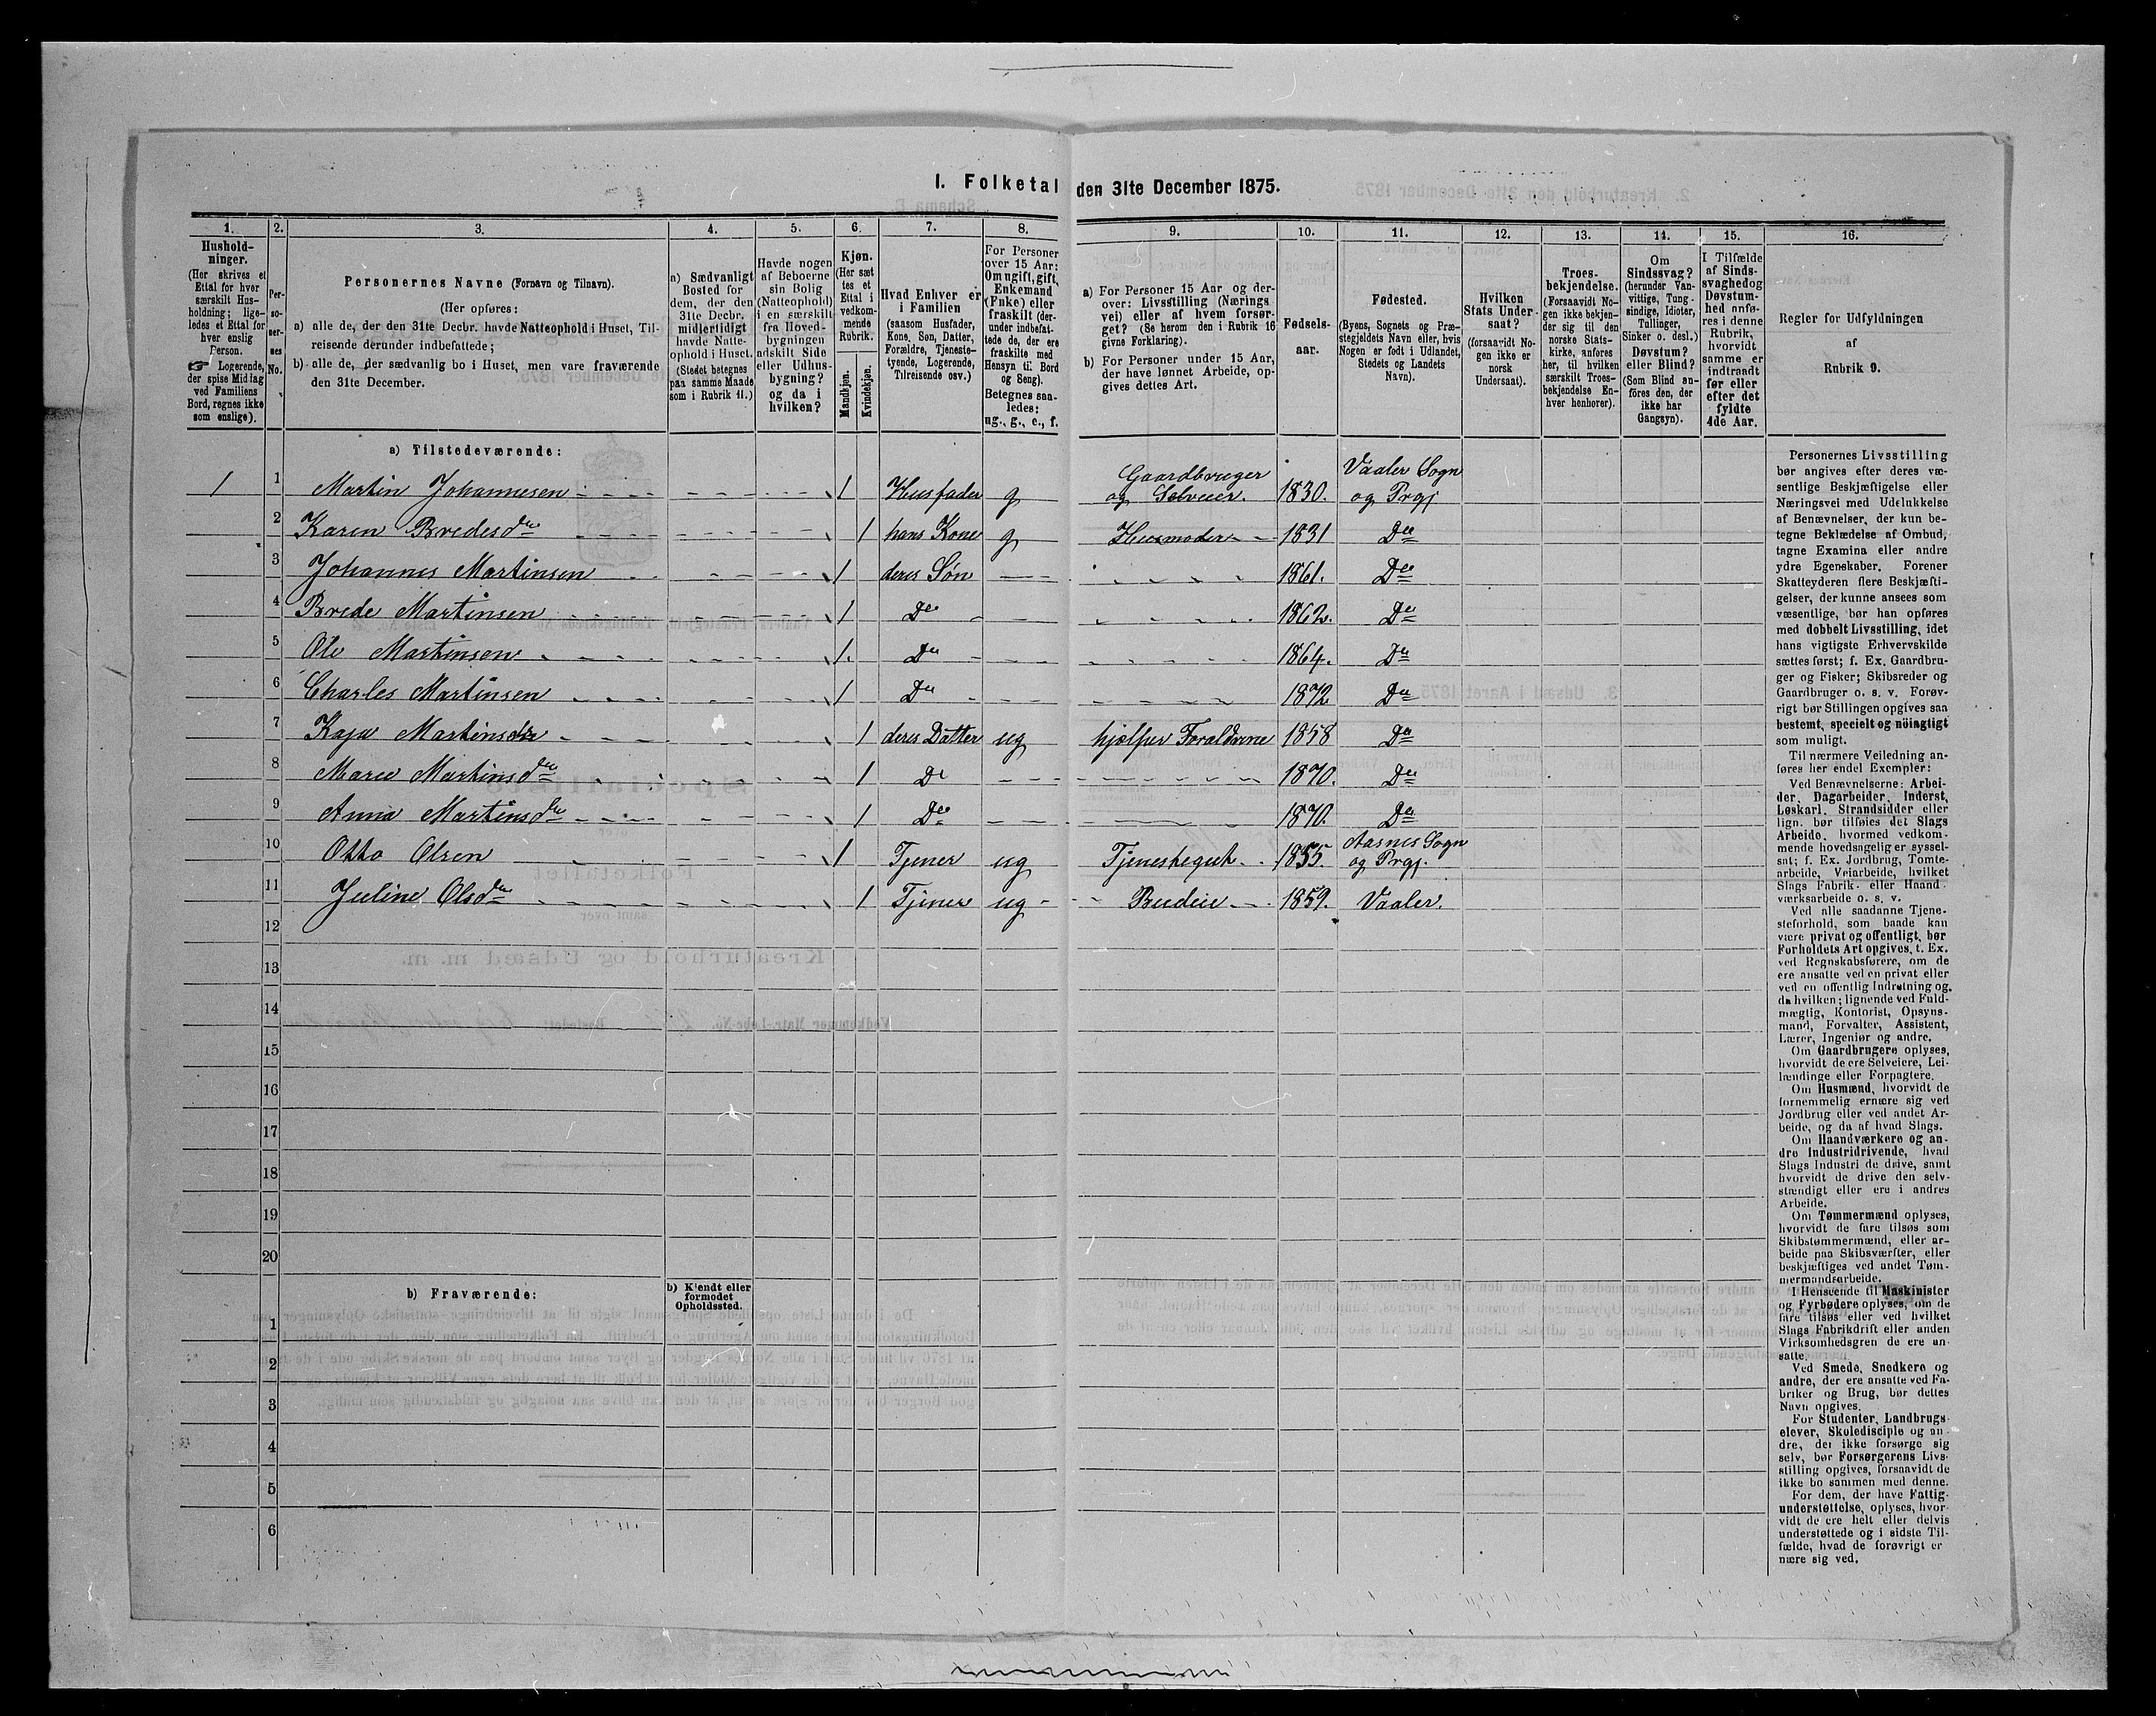 I. Folketal den 31te December 1875.
1.
Hushold-
ninger.
(Her skrives et
Ettal for hver
særskilt Hus-
holdning; lige-
ledes et Ettal for
hver enslig
Person.
☞ Logerende,
der spise Middag
ved Familiens
Bord, regnes ikke
som enslige).
2.
Per-
so-
ner-
nes
No.
3.
Personernes Navne (Fornavn og Tilnavn).
(Her opføres:
a) alle de, der den 31te Decbr. havde Natteophold i Huset, Til-
reisende derunder indbefattede;
b) alle de, der sædvanlig bo i Huset, men vare fraværende
den 31te December.
4.
a) Sædvanligt
Bosted for
dem, der den
31te Decbr.
midlertidigt
havde Natte-
ophold i Huset.
(Stedet betegnes
paa samme Maade
som i Rubrik 11.)
5.
Havde nogen
af Beboerne
sin Bolig
(Natteophold)
i en særskilt
fra Hoved-
bygningen
adskilt Side
eller Udhus-
bygning?
og da i
hvilken?
6.
Kjøn.
(Her sæt
tes et
Ettal i
vedkom-
mende
Rubrik.
Mandkjøn.
Kvindekjøn.
7.
Hvad Enhver er
i Familien
(saasom Husfader,
Kone, Søn, Datter,
Forældre, Tjeneste-
tyende, Logerende,
Tilreisende osv.)
8.
For Personer
over 15 Aar:
Om ugift, gift,
Enkemand
(Enke) eller
fraskilt (der-
under indbefat-
tede de, der ere
fraskilte med
Hensyn til Bord
og Seng).
Betegnes saa-
ledes:
ug., g., e., f.
9.
a) For Personer 15 Aar og der-
over: Livsstilling (Nærings
vei) eller af hvem forsør-
get? (Se herom den i Rubrik 16
givne Forklaring).
b) For Personer under 15 Aar,
der have lønnet Arbeide, op-
gives dettes Art.
10.
Fødsels-
aar.
11.
Fødested.
(Byens, Sognets og Præ-
stegjeldets Navn eller, hvis
Nogen er født i Udlandet,
Stedets og Landets
Navn).
12.
Hvilken
Stats Under-
saat?
(forsaavidt No-
gen ikke er
norsk
Undersaat).
13.
Troes-
bekjendelse.
(Forsaavidt No-
gen ikke bekjen-
der sig til den
norske Stats-
kirke, anføres
her, til hvilken
særskilt Troes-
bekjendelse En-
hver henhører).
14.
Om
Sindssvag?
(herunder Van-
vittige, Tung-
sindige, Idioter,
Tullinger,
Sinker o. desl.)
Døvstum?
eller Blind?
(Som Blind an-
føres den, der
ikke har
Gangsyn).
15.
I Tilfælde
af Sinds-
svaghed og
Døvstum-
hed anfø-
res i denne
Rubrik,
hvorvidt
samme er
indtraadt
før eller
efter det
fyldte
4de Aar.
16.
Regler for Udfyldningen
af
Rubrik 9.
a) Tilstedeværende:
1 1 Martin Johannesen 1 Husfader g Gaardbruger og Selveier. 1830. Vaaler Sogn og Prgj
2 Karen Bredesdtr 1 hans Kone g Husmoder 1831 Do
3 Johannes Martinsen 1 deres Søn 1861. Do
4 Brede Martinsen 1 Do 1862. Do
5 Ole Martinsen 1. Do 1864. Do
6 Charles Martinsen 1 Do 1872 Do
7 Kaja Martinsdtr 1 deres Datter ug hjælper Forældrene 1858 Do
8 Maria Martinsdtr 1 Do 1870. Do
9 Anna Martinsdtr 1 Do 1870. Do
10 Otto Olsen 1 Tjener ug Tjenestegut 1855. Aasnes Sogn og Prgj.
11 Juline Olsdtr 1 Tjener ug Budeie 1859. Vaaler.
12
13
14
15
16
17
18
19
20
b) Fraværende:
b) Kjendt eller
formodet
Opholdssted.
1
2
3
4
5
6
Personernes Livsstilling
bør angives efter deres væ-
sentlige Beskjæftigelse eller
Næringsvei med Udelukkelse
af Benævnelser, der kun be-
tegne Beklædelse af Ombud,
tagne Examina eller andre
ydre Egenskaber. Forener
Skatteyderen flere Beskjæfti-
gelser, der kunne ansees som
væsentlige, bør han opføres
med dobbelt Livsstilling, idet
hans vigtigste Erhvervskilde
sættes først; f. Ex. Gaardbru-
ger og Fisker; Skibsreder og
Gaardbruger o. s. v. Forøv-
rigt bør Stillingen opgives saa
bestemt, specielt og nöiagtigt
som muligt.
Til nærmere Veiledning an-
føres her endel Exempler:
Ved Benævnelserne: Arbei-
der, Dagarbeider, Inderst,
Løskarl, Strandsidder eller
lign. bør tilføies det Slags
Arbeide, hvormed vedkom-
mende hovedsagelig er syssel-
sat; f. Ex. Jordbrug, Tomte-
arbeide, Veiarbeide, hvilket
Slags Fabrik- eller Haand-
værksarbeide o. s. v.
Ved alle saadanne Tjene-
steforhold, som baade kan
være privat og offentligt, bør
Forholdets Art opgives, t. Ex.
ved Regnskabsførere, om de
ere ansatte ved en privat eller
ved en offentlig Indretning og,
da hvilken; lignende ved Fuld-
mægtig, Kontorist, Opsyns-
mand, Forvalter, Assistent,
Lærer, Ingeniør og andre.
Om Gaardbrugere oplyses,
hvorvidt de ere Selveiere, Lei-
lændinge eller Forpagtere.
Om Husmænd, hvorvidt de
fornemmelig ernære sig ved
Jordbrug eller ved andet Ar-
beide, og da af hvad Slags.
Om Haandværkere og an-
dre Industridrivende, hvad
Slags Industri de drive, samt
hvorvidt de drive den selv-
stændigt eller ere i andres
Arbeide.
Om Tømmermænd oplyses,
hvorvidt de fare tilsøs som
Skibstømmermænd, eller ar-
beide paa Skibsværfter, eller
beskjæftiges ved andet Tøm-
mermandsarbeide.
I Henseende til Maskinister
og Fyrbødere oplyses, om de
fare tilsøs eller ved hvilket
Slags Fabrikdrift eller anden
Virksomhedsgren de ere an-
satte.
Ved Smede, Snedkere og
andre, der ere ansatte ved Fa-
briker og Brug, bør dettes
Navn opgives.
For Studenter, Landbrugs-
elever, Skoledisciple og an-
dre, der ikke forsørge sig
selv, bør Forsørgerens Livs-
stilling opgives, forsaavidt de
ikke bo sammen med denne.
For dem, der have Fattig-
understøttelse, oplyses, hvor-
vidt de ere helt eller delvis
understøttede og i sidste Til-
fælde, hvad de forøvrigt er
nære sig ved.